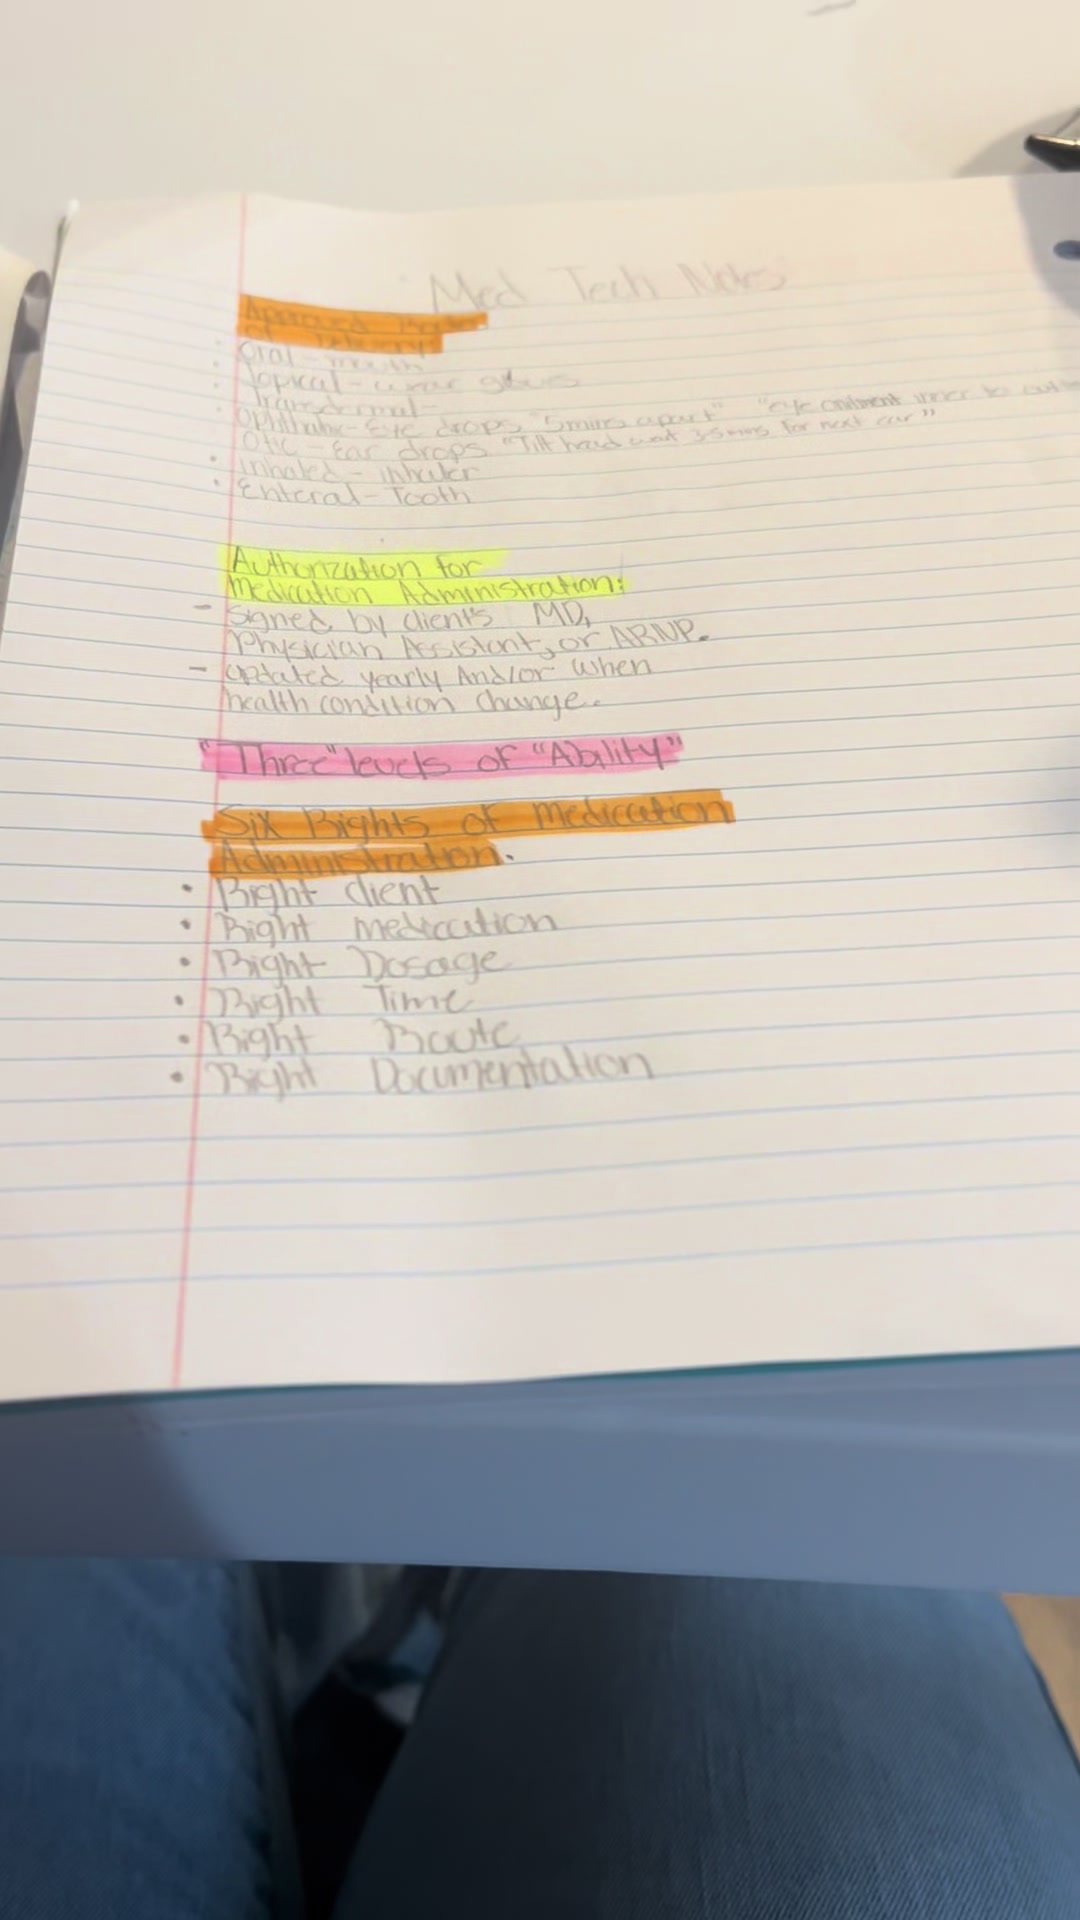 Med Tech Notes
Approved Routes
of Delivery
Oral - mouth
Topical - wear gloves
Transdermal -
Ophthalmic - Eye drops "5 mins apart" "eye ointment inner to
Otic - Ear drops "Tilt head wait 3-5 mins for next ear"
Inhaled - inhaler
Enteral - Tooth
Authorization for
Medication Administration:
- Signed by client's MD,
Physician Assistant, or ARNP.
- Updated yearly And/or when
health condition change.
"Three" levels of "Ability"
Six Rights of Medication
Administration.
• Right client
• Right medication
• Right Dosage
• Right Time
• Right Route
• Right Documentation